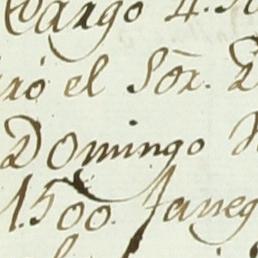 Cargo 4.
ró el Sõr. D
Domingo
1.500. faneg